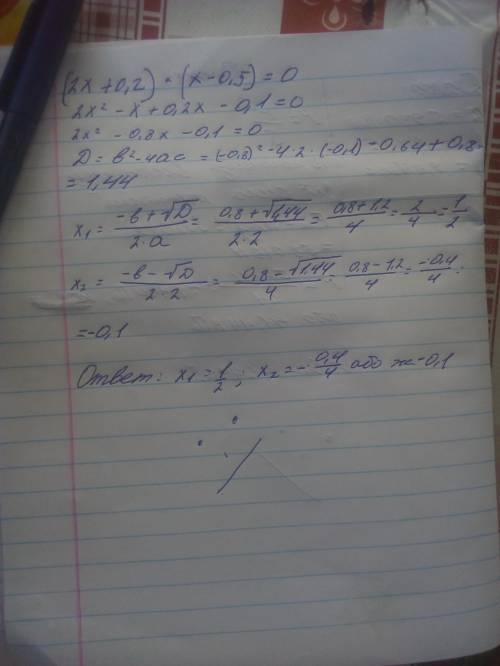 (2x+0,2) · (x-0,5)=0
2x² - x + 0,2x - 0,1=0
2x² - 0,8x - 0,1=0
D = b²-4ac = (-0,8)²-4·2·(-0,1)=0,64+0,8=
=1,44
x₁ = (-b+√D)/(2·a) = (0,8+√1,44)/(2·2) = (0,8+1,2)/4 = 2/4 = 1/2
x₂ = (-b-√D)/(2·2) = (0,8-√1,44)/4 = (0,8-1,2)/4 = (-0,4)/4 =
=-0,1
Ответ: x₁=1/2; x₂=-0,4/4 або ж -0,1